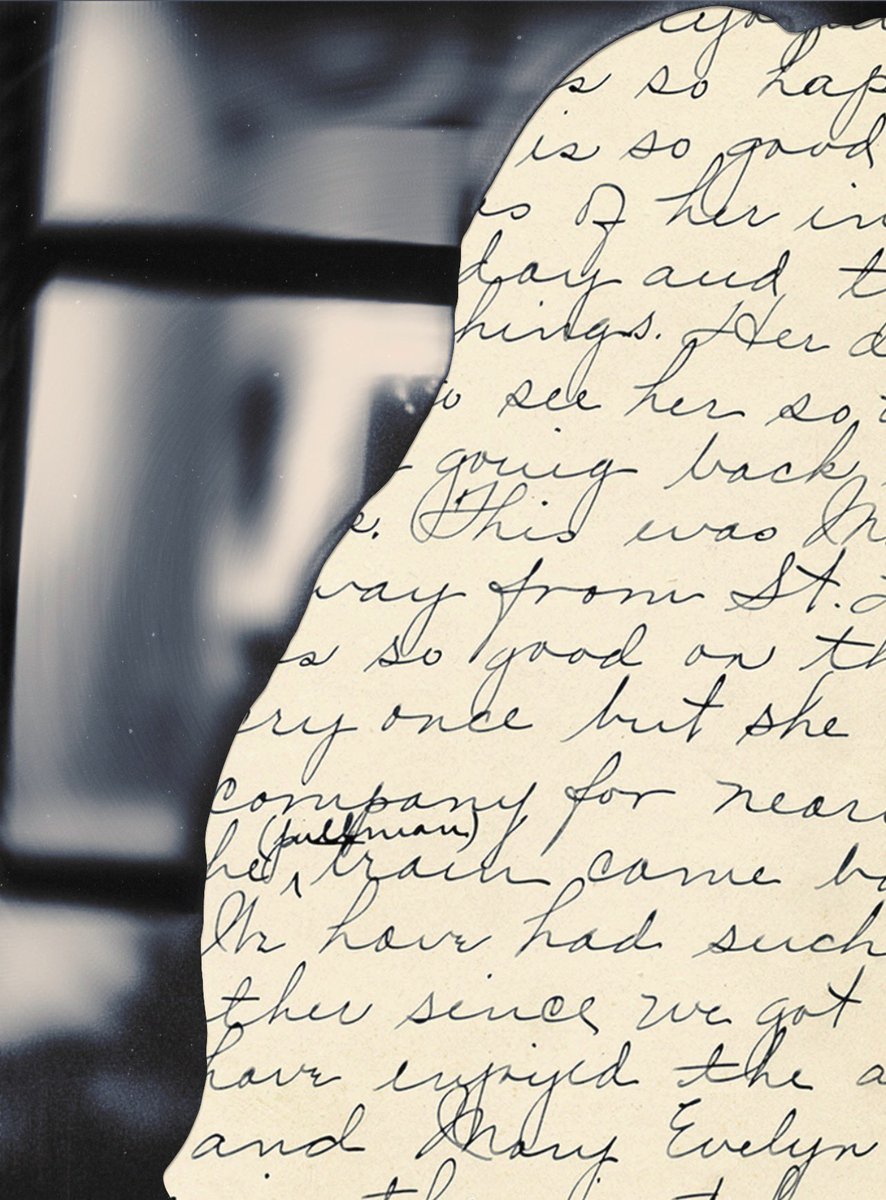 s so hap
is so good
es of her in
day and t
hings. Her d
o see her so
going back
e. This was M
way from St. L
s so good on th
ery once but she
company for near
(pullman)
he train come ba
We have had such
ther since we got
have enjoyed the a
and Mary Evelyn